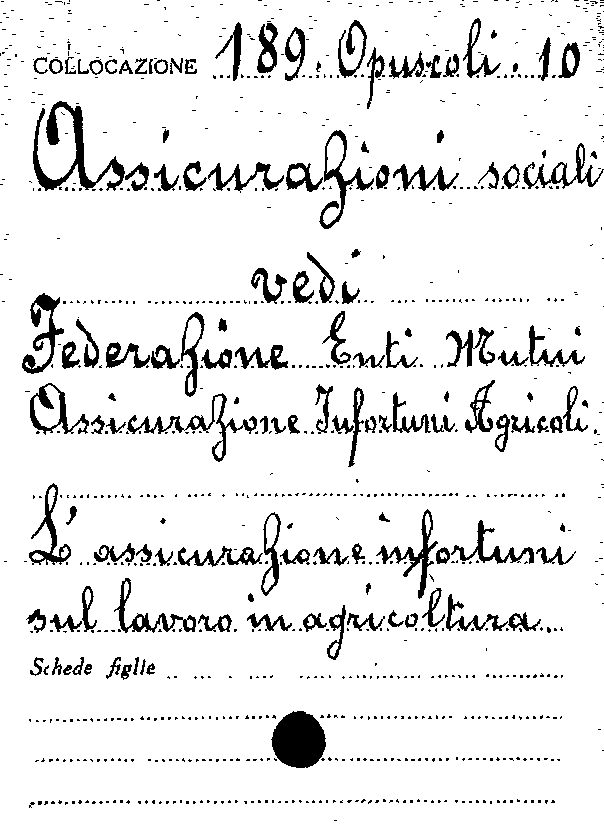 COLLOCAZIONE 189. Opuscoli. 10
Assicurazioni sociali
vedi
Federazione Enti Mutui
Assicurazione Infortuni Agricoli.
L'assicurazione infortuni
sul lavoro in agricoltura.
Schede figlie